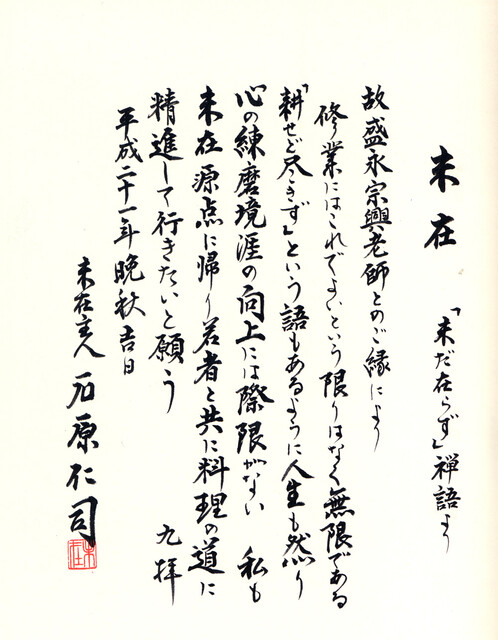 未在 「未だ在らず」禅語より
故盛永宗興老師とのご縁により
修業にはこれでよいという限りはなく無限である
「耕せど尽きず」という語もあるように人生も然り
心の練磨境涯の向上には際限がない 私も
未在源点に帰り若者と共に料理の道に
精進して行きたいと願う 九拝
平成二十一年晩秋吉日
未在主人 石原仁司
未在